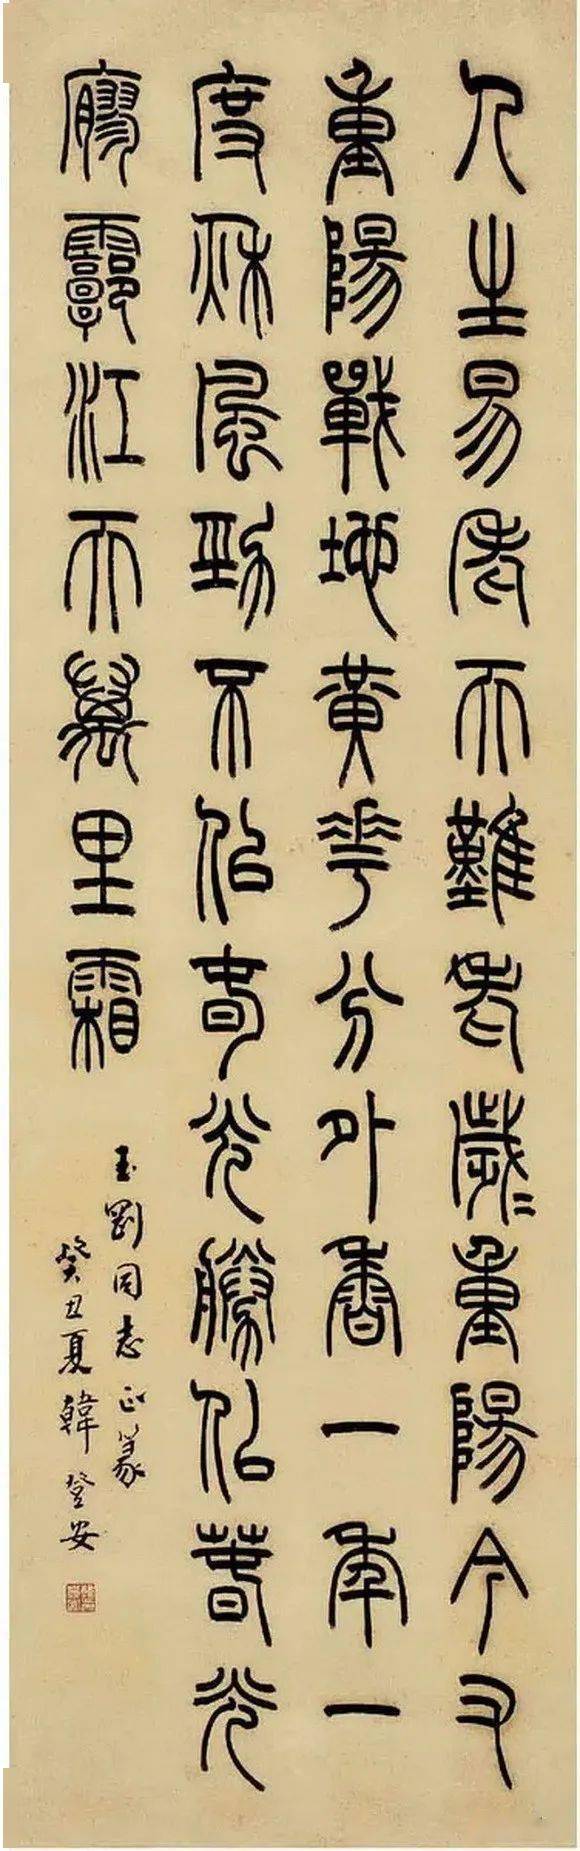 人生易老天難老歲〻重陽今又
重陽戰地黃華分外香一年一
度秋風勁不似春光勝似春光
寥廓江天萬里霜
玉剛同志正篆
癸丑夏韓登安